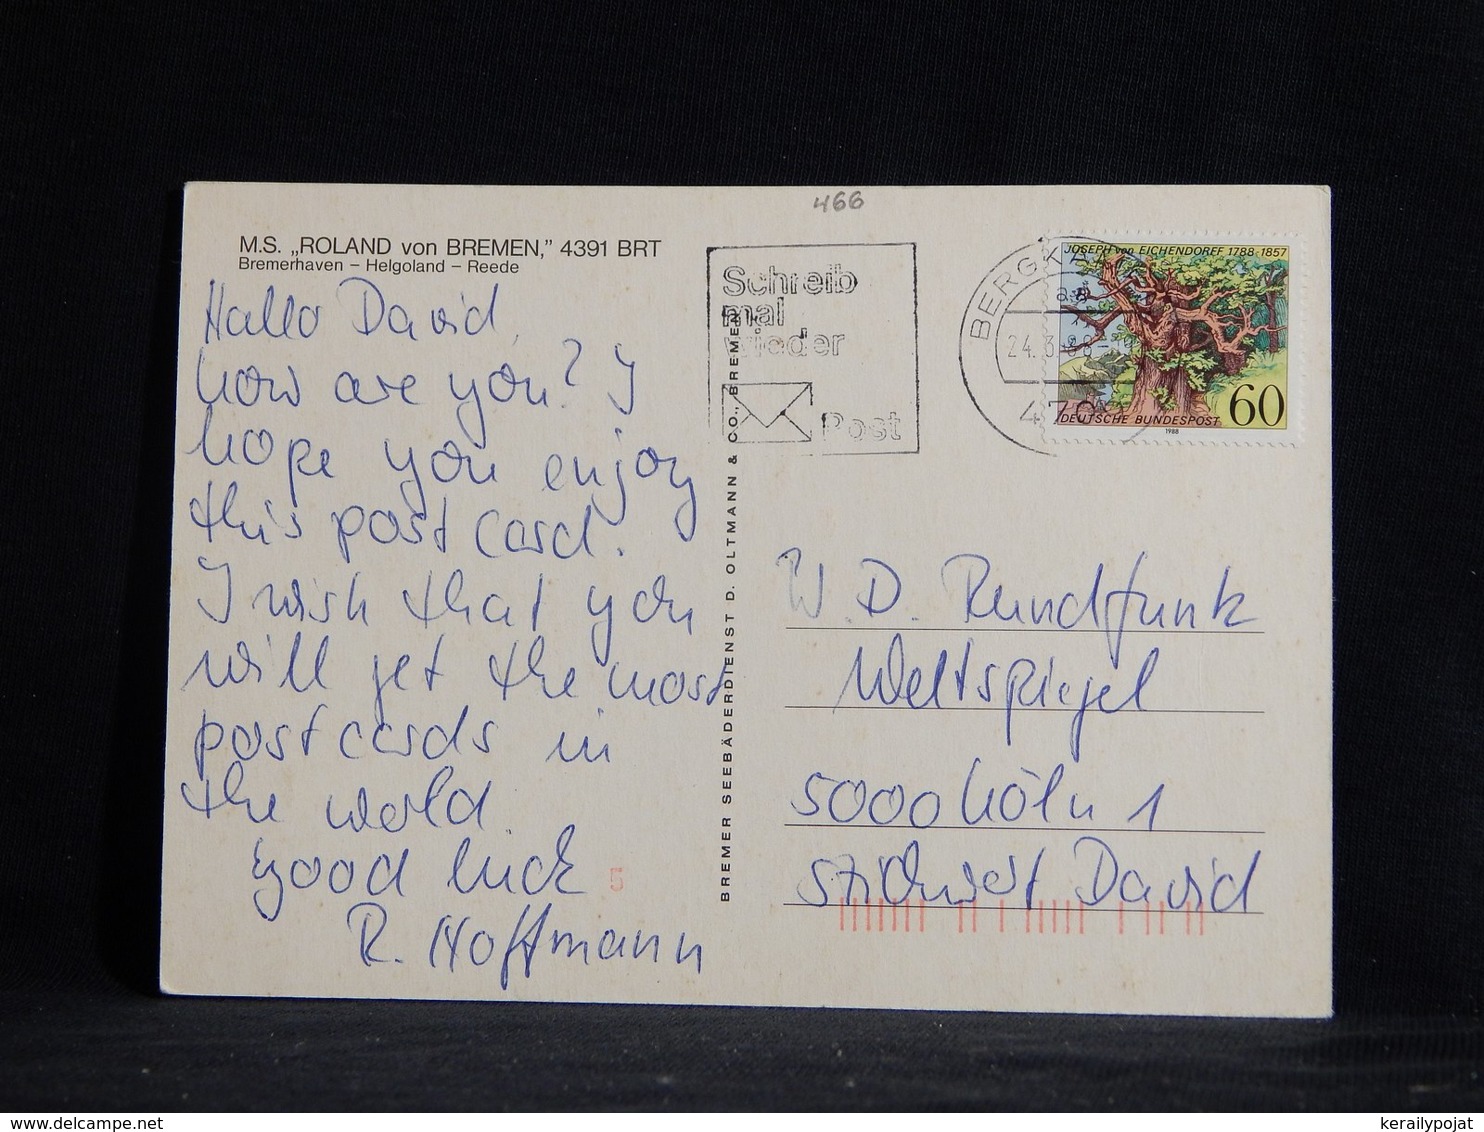 466
M.S. „ROLAND von BREMEN,” 4391 BRT
Bremerhaven – Helgoland – Reede
Hallo David,
how are you? I
hope you enjoy
this postcard.
I wish that you
will get the most
postcards in
the world.
good luck
R. Hoffmann
5
BREMER SEEBÄDERDIENST D. OLTMANN & CO., BREMEN
Schreib
mal
wieder
Post
24.3.88
JOSEPH von EICHENDORFF 1788-1857
60
DEUTSCHE BUNDESPOST
1988
W. D. Rundfunk
Weltspiegel
5000 Köln 1
Stichwort David
kerailypojat
www.delcampe.net